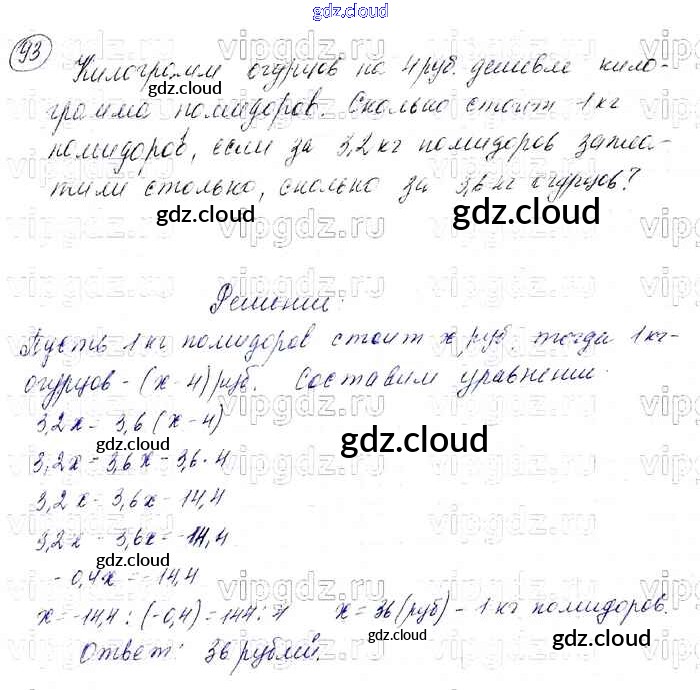 gdz.cloud
93
Килограмм огурцов на 4 руб. дешевле кило-
грамма помидоров. Сколько стоит 1 кг
помидоров, если за 3,2 кг помидоров запла-
тили столько, сколько за 3,6 кг огурцов?
Решение:
Пусть 1 кг помидоров стоит x руб. тогда 1 кг-
огурцов - (x-4) руб. Составим уравнение.
3,2x = 3,6(x-4)
3,2x = 3,6x - 3,6·4
3,2x = 3,6x - 14,4
3,2x - 3,6x = -14,4
-0,4x = -14,4
x = -14,4 : (-0,4) = 144 : 4 x = 36 (руб) - 1 кг помидоров.
Ответ: 36 рублей.